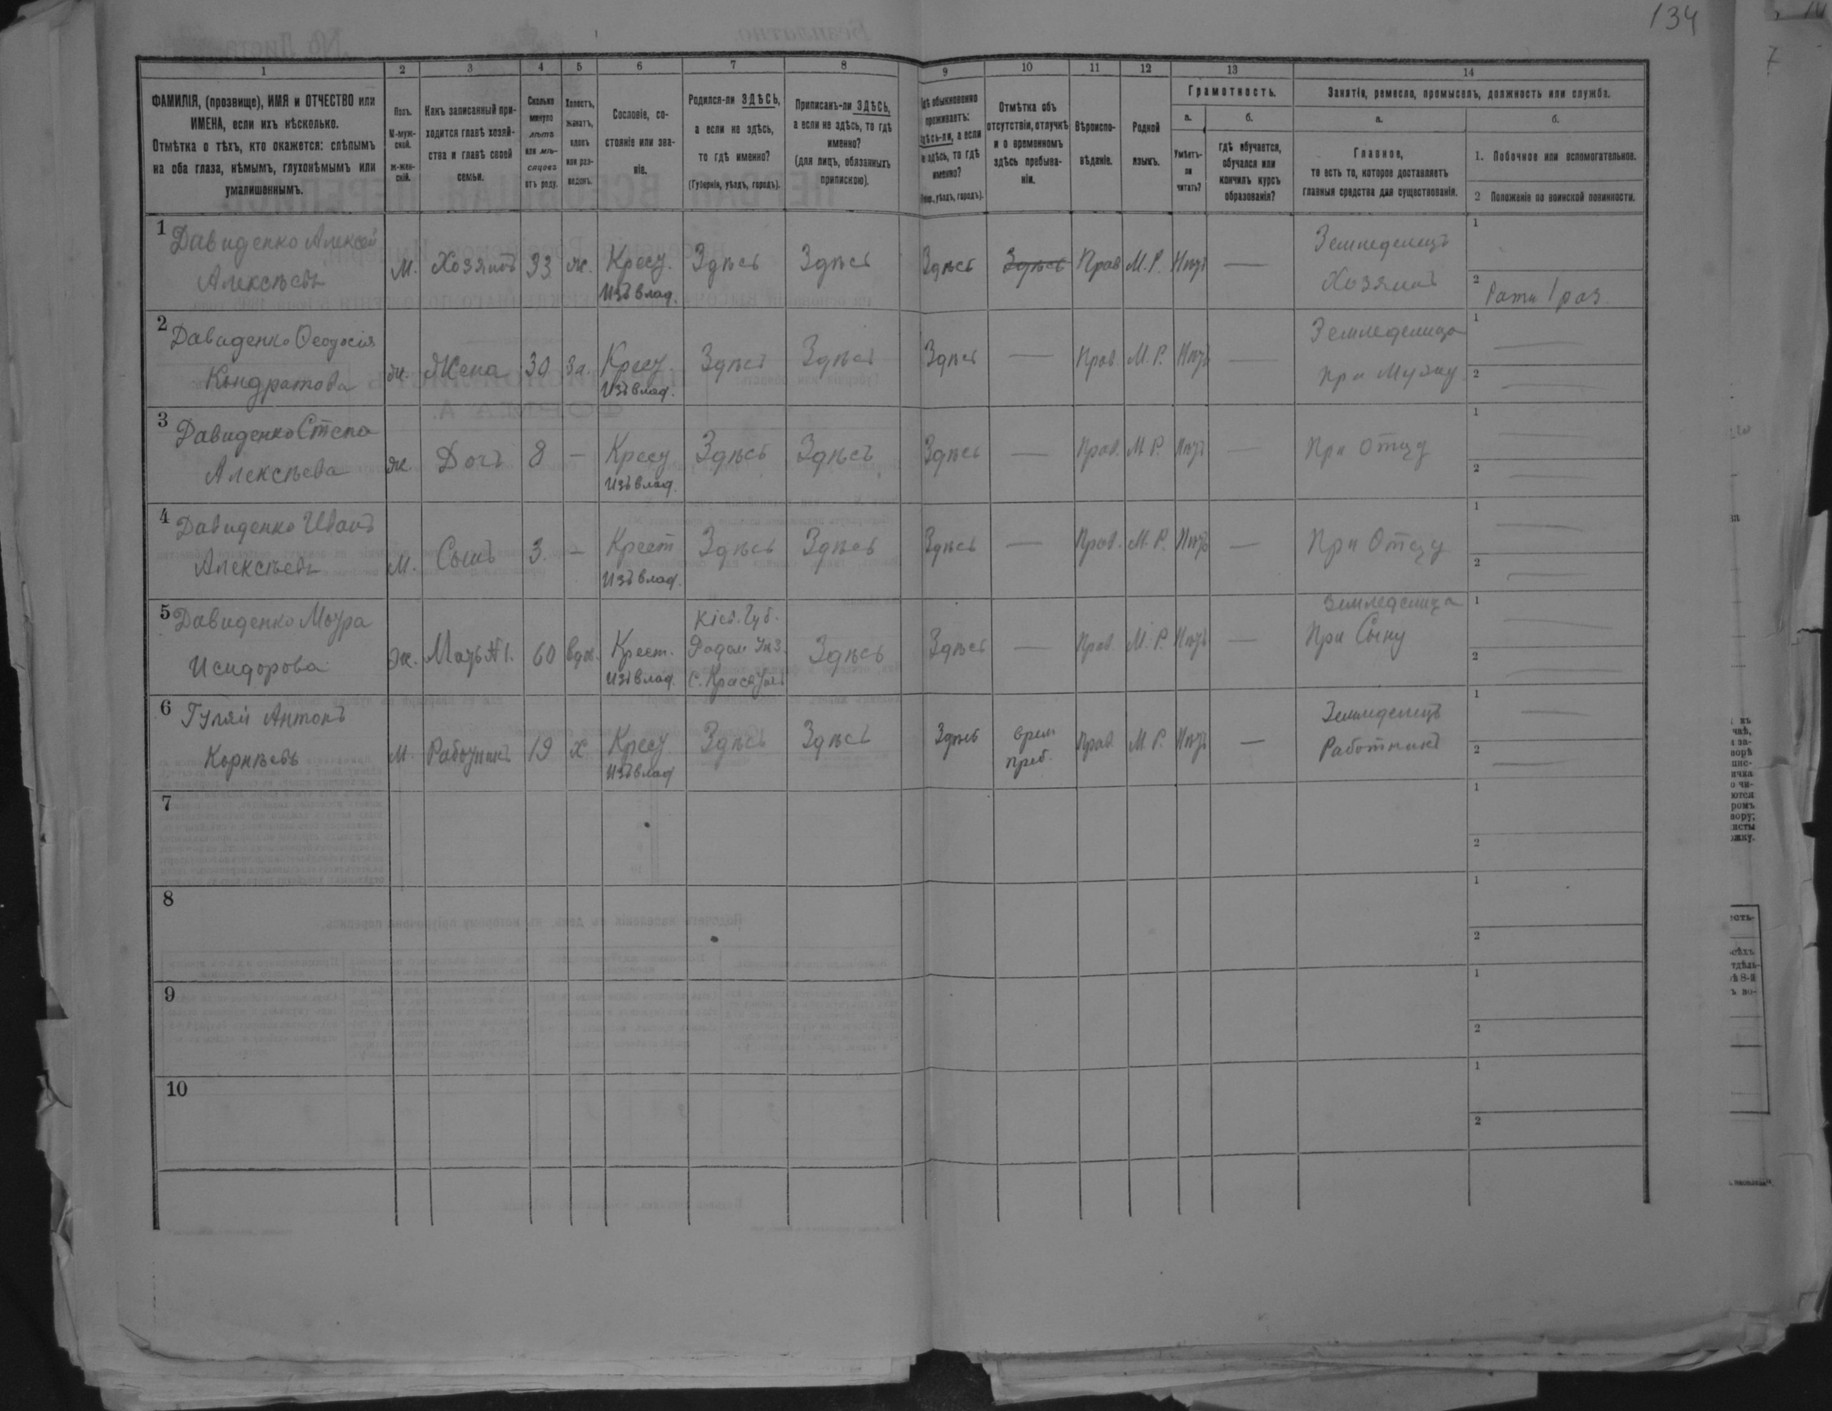 134
1
2
3
4
5
6
7
8
9
10
11
12
13
14
ФАМИЛІЯ, (прозвище), ИМЯ и ОТЧЕСТВО или
ИМЕНА, если ихъ нѣсколько.
Отмѣтка о тѣхъ, кто окажется: слѣпымъ
на оба глаза, нѣмымъ, глухонѣмымъ или
умалишеннымъ.
Полъ.
М-муж-
ской.
Ж-жен-
скій.
Какъ записанный при-
ходится главѣ хозяй-
ства и главѣ своей
семьи.
Сколько
минуло
лѣтъ
или мѣ-
сяцевъ
отъ роду.
Холостъ,
женатъ,
вдовъ
или раз-
веденъ.
Сословіе, со-
стояніе или зва-
ніе.
Родился-ли ЗДѢСЬ,
а если не здѣсь,
то гдѣ именно?
(Губернія, уѣздъ, городъ).
Приписанъ-ли ЗДѢСЬ,
а если не здѣсь, то гдѣ
именно?
(для лицъ, обязанныхъ
припискою).
гдѣ обыкновенно
проживаетъ:
здѣсь-ли, а если
не здѣсь, то гдѣ
именно?
уѣздъ, городъ).
Отмѣтка объ
отсутствіи, отлучкѣ
и о временномъ
здѣсь пребыва-
ніи.
Вѣроиспо-
вѣданіе.
Родной
языкъ.
Грамотность.
а.
б.
Умѣетъ-
ли
читать?
гдѣ обучается,
обучался или
кончилъ курсъ
образованія?
Занятіе, ремесло, промыселъ, должность или служба.
а.
б.
Главное,
то есть то, которое доставляетъ
главныя средства для существованія.
1. Побочное или вспомогательное.
2 Положеніе по воинской повинности.
1 Давиденко Алексѣй
Алексѣевъ
м. Хозяинъ 33 ж. Крест. Здѣсь Здѣсь Здѣсь Здѣсь Прав М.Р. Нѣтъ —
Изъ влад.
Земледелецъ
Хозяинъ
1
2 Ратн 1 раз
2 Давиденко Ѳеодосія
Кондратова
ж. Жена 30 За. Крест Здѣсь Здѣсь Здѣсь — Прав. М.Р. Нѣтъ —
Изъ влад.
Земледелица
При Мужу
1 —
2 —
3 Давиденко Степа
Алексѣева
ж Дочь 8 — Крест Здѣсь Здѣсь Здѣсь — Прав. М.Р. Нѣтъ —
Изъ влад.
При Отцу
1 —
2 —
4 Давиденко Иванъ
Алексѣевъ
м. Сынъ 3. — Крест Здѣсь Здѣсь Здѣсь — Прав. М.Р. Нѣтъ —
Изъ влад.
При Отцу
1 —
2 —
5 Давиденко Мотра
Исидорова
ж. Мать №1. 60 вдов. Крест. Здѣсь Здѣсь — Прав. М.Р. Нѣтъ —
Изъ влад.
Кіев. Губ.
Земледелица
При Сыну
1 —
2 —
6 Гуляй Антонъ
Корнѣевъ
м. Работникъ 19 х Крест Здѣсь Здѣсь Здѣсь врем Прав. М.Р. Нѣтъ —
Изъ влад
преб.
Земледелецъ
Работникъ
1 —
2 —
7
1
2
8
1
2
9
1
2
10
1
2